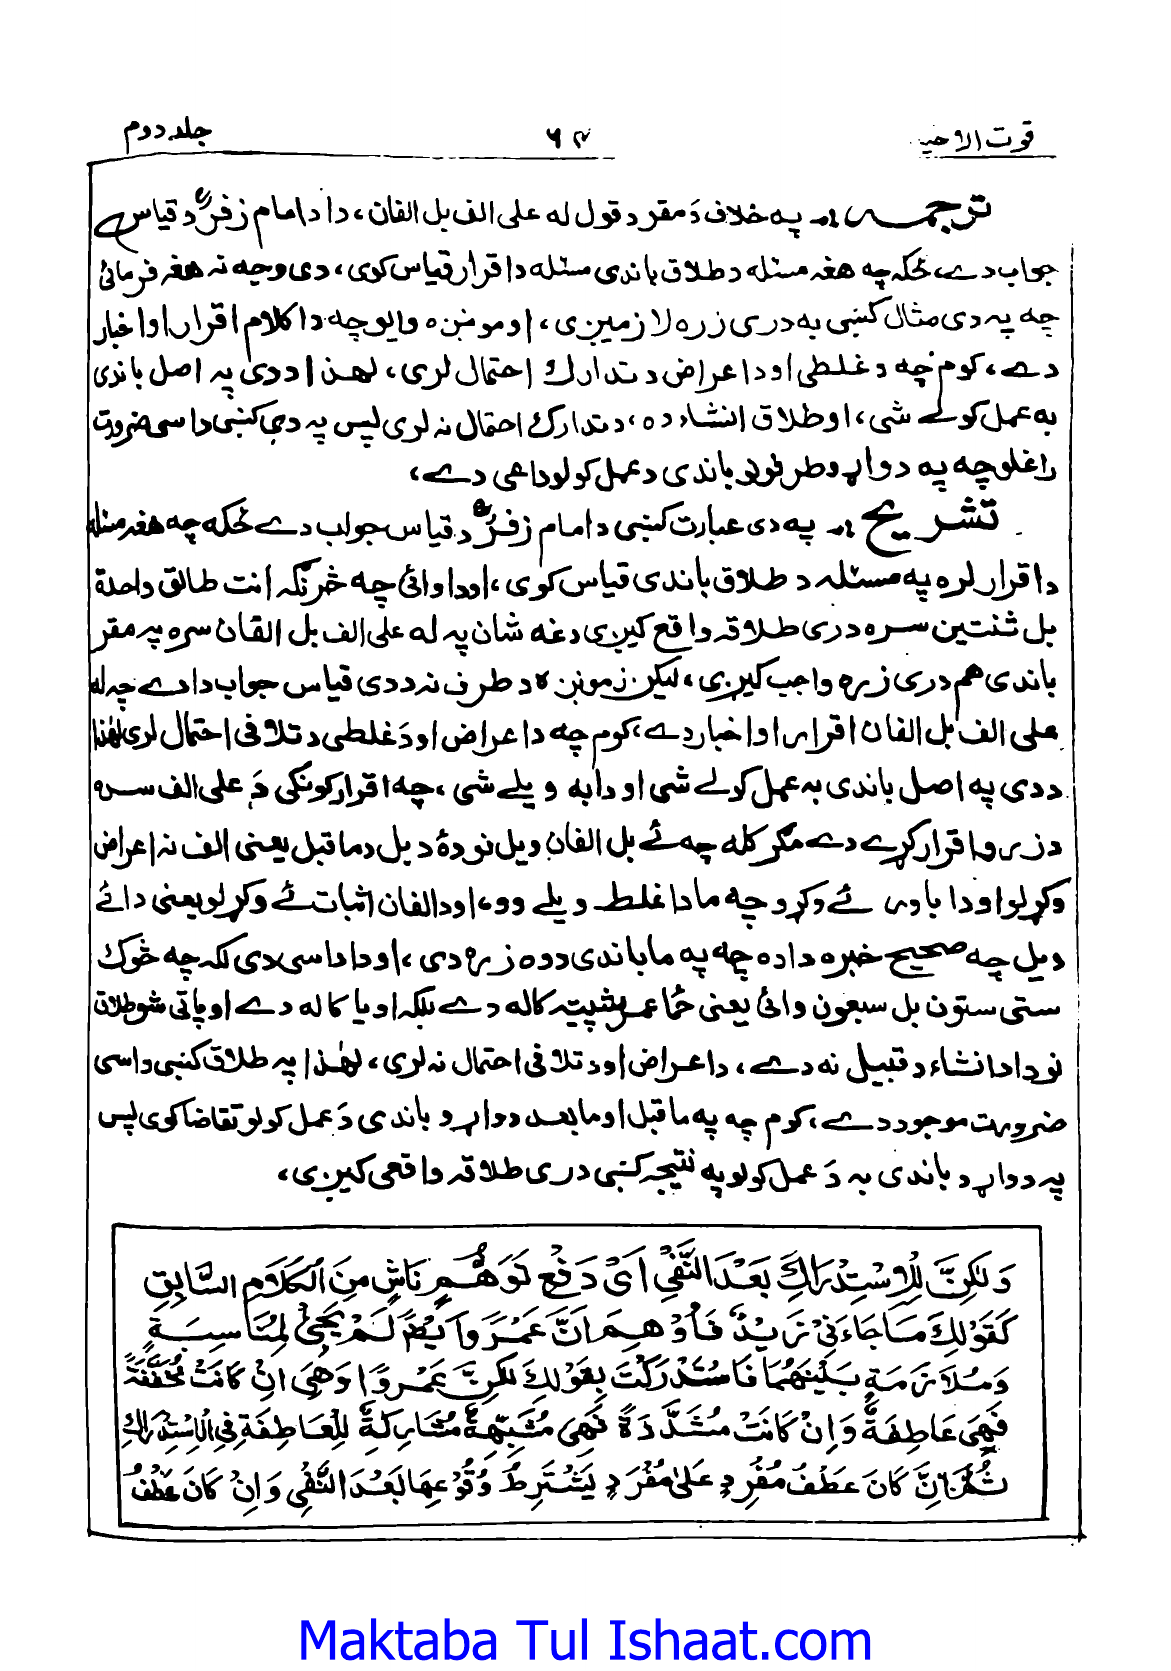 قوت الاخيا ۶۴ جلد دوم
ترجمه :- په خلاف دَ مقر د قول له علی الف بل الفان، دا د امام زفرؒ د قیاس
جواب دے، ځکه چه هغه مسئله د طلاق باندی مسئله د اقرار قیاس کوی، دی وجه نه هغه فرمائی
چه په دی مثال کښی به دری زره لازمیږی، اومونږه وایو چه دا کلام اقرار او اخبار
دے، کوم چه د غلطی او د اعراض د تدارك احتمال لری، لهذا ددی په اصل باندی
به عمل کولے شی، او طلاق انشاء ده، د تدارك احتمال نه لری پس په دې کښی داسی ضرورت
راغلو چه په دواړو طرفونو باندی د عمل کولو داعی دے،
تشریح :- په دی عبارت کښی د امام زفرؒ د قیاس جواب دے ځکه چه هغه مسئله
د اقرار لره په مسئله د طلاق باندی قیاس کوی، او دا وائی چه څرنګه انت طالق واحدة
بل ثنتین سره دری طلاقه واقع کیږی دغه شان په له علی الف بل الفان سره په مقر
باندی هم دری زره واجب کیږی، لیکن زمونږه د طرف نه ددی قیاس جواب دا دے چه له
علی الف بل الفان اقرار او اخبار دے، کوم چه د اعراض او دَ غلطی د تلافی احتمال لری لهٰذا
ددی په اصل باندی به عمل کولے شی او دا به ویلے شی، چه اقرار کونکی دَ علی الف سره
د زرو اقرار کړے دے مګر کله چه ئے بل الفان ویل نو دهٔ د بل د ماقبل یعنی الف نه اعراض
وکړلو او دا باور ئے وکړو چه ما دا غلط ویلے وو، او د الفان اثبات ئے وکړلو یعنی دا ئے
ویل چه صحیح خبره داده چه په ما باندی دوه زره دی، او دا داسی دی لکه چه څوك
ستی ستون بل سبعون وائی یعنی ځما عمر شپیته کاله دے بلکه اویا کاله دے او پاتی شو طلاق
نو دا د انشاء د قبیل نه دے، د اعراض او د تلافی احتمال نه لری، لهٰذا په طلاق کښی داسی
ضرورت موجود دے، کوم چه په ماقبل او مابعد دواړو باندی دَ عمل کولو تقاضا کوی پس
په دواړو باندی به دَ عمل کولو په نتیجه کښی دری طلاقه واقعی کیږی،
وَلٰكِنَّ لِلْاِسْتِدْرَاكِ بَعْدَ النَّفْيِ اَيْ دَفْعِ تَوَهُّمٍ نَاشٍ مِنَ الْكَلَامِ السَّابِقِ
كَقَوْلِكَ مَا جَاءَنِيْ زَيْدٌ فَاُوْهِمَ اَنَّ عَمْرًوا اَيْضًا لَمْ يَجِيْ لِمُنَاسِبَةٍ
وَمُلَازَمَةٍ بَيْنَهُمَا فَاسْتَدْرَكْتَ بِقَوْلِكَ لٰكِنَّ عَمْرًوا وَهِيَ اِنْ كَانَتْ مُخَفَّفَةً
فَهِيَ عَاطِفَةٌ وَاِنْ كَانَتْ مُشَدَّدَةً فَهِيَ مُشَبَّهَةٌ مُشَارِكَةٌ لِلْعَاطِفَةِ فِي الْاِسْتِدْرَاكِ
ثُمَّ اِنْ كَانَ عَطْفُ مُفْرَدٍ عَلٰى مُفْرَدٍ يَشْتَرِطُ وُقُوْعَهَا بَعْدَ النَّفْيِ وَاِنْ كَانَ عَطْفُ
Maktaba Tul Ishaat.com